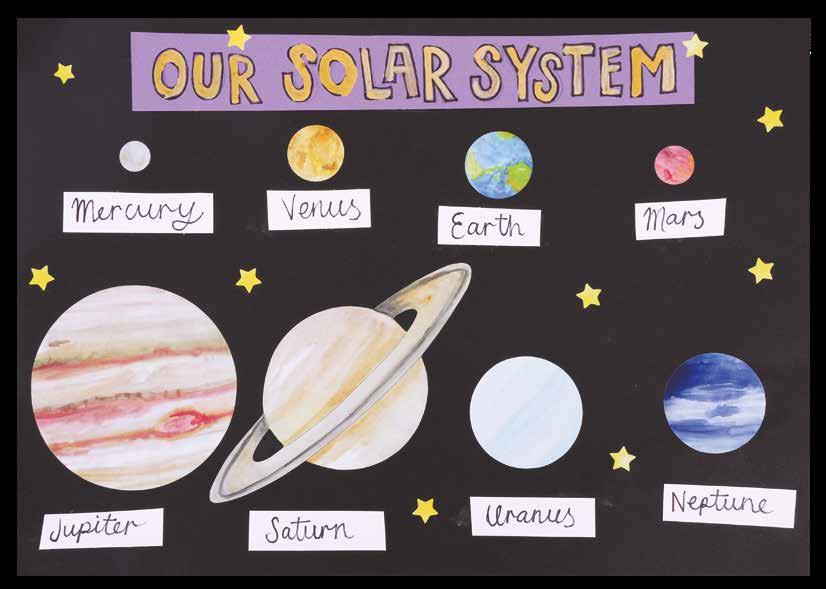 OUR SOLAR SYSTEM
Mercury
Venus
Earth
Mars
Jupiter
Saturn
Uranus
Neptune